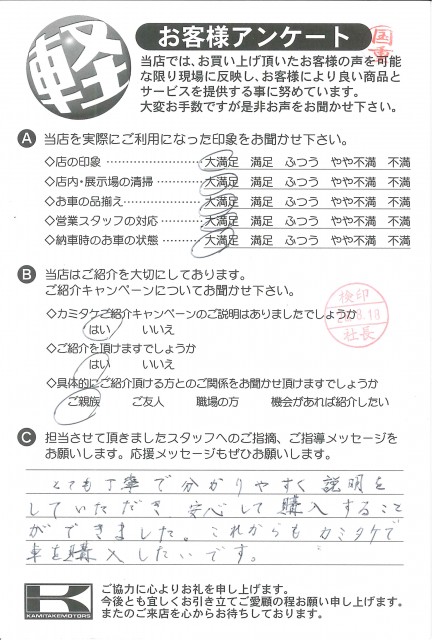 軽
お客様アンケート
国重
当店では、お買い上げ頂いたお客様の声を可能
な限り現場に反映し、お客様により良い商品と
サービスを提供する事に努めています。
大変お手数ですが是非お声をお聞かせ下さい。
A 当店を実際にご利用になった印象をお聞かせ下さい。
◇店の印象 大満足 満足 ふつう やや不満 不満
◇店内・展示場の清掃 大満足 満足 ふつう やや不満 不満
◇お車の品揃え 大満足 満足 ふつう やや不満 不満
◇営業スタッフの対応 大満足 満足 ふつう やや不満 不満
◇納車時のお車の状態 大満足 満足 ふつう やや不満 不満
B 当店はご紹介を大切にしております。
ご紹介キャンペーンについてお聞かせ下さい。
◇カミタケご紹介キャンペーンのご説明はありましたでしょうか
はい いいえ
検印
社長
◇ご紹介を頂けますでしょうか
はい いいえ
◇具体的にご紹介頂ける方とのご関係をお聞かせ頂けますでしょうか
ご親族 ご友人 職場の方 機会があれば紹介したい
C 担当させて頂きましたスタッフへのご指摘、ご指導メッセージを
お願いします。応援メッセージもぜひお願いします。
とても丁寧で分かりやすく説明を
していただき、安心して購入すること
ができました。これからもカミタケで
車を購入したいです。
K
KAMITAKEMOTORS
ご協力に心よりお礼を申し上げます。
今後とも宜しくお引き立てご愛顧の程お願い申し上げます。
またのご来店を心からお待ちしております。